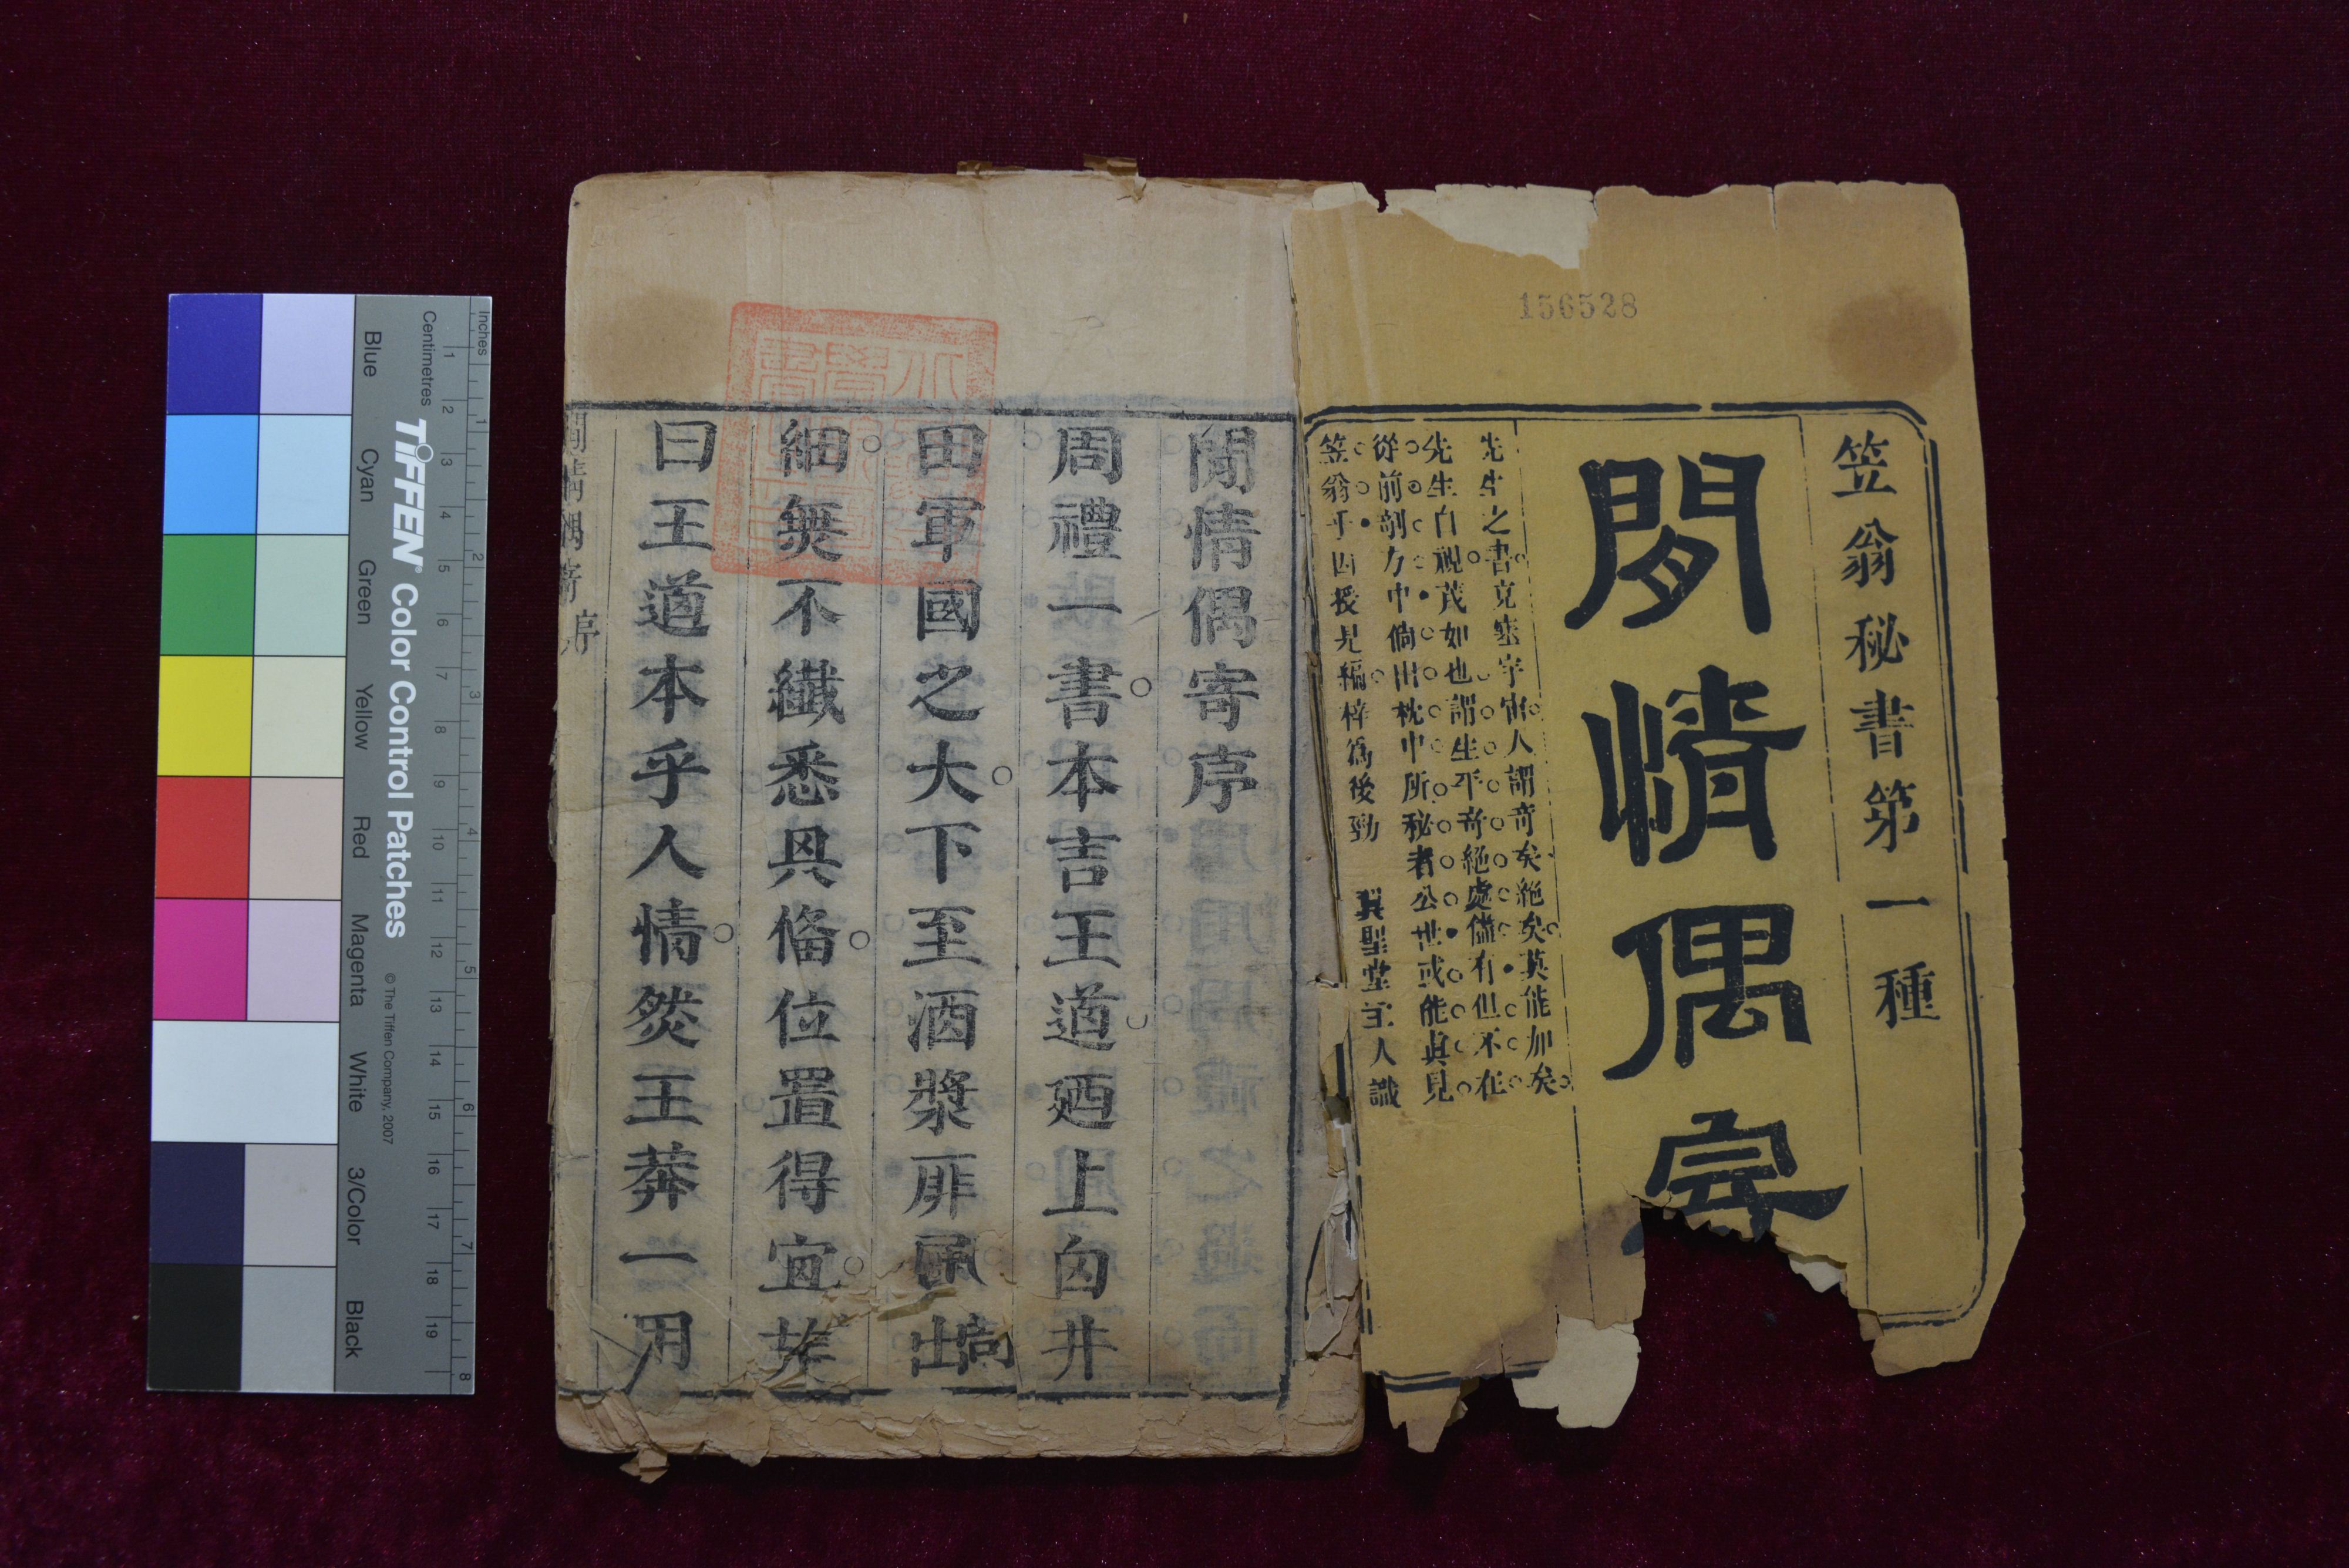 156528
笠翁秘書第一種
閒情偶寄
先生之書充塞宇宙人謂奇矣絕矣莫能加矣
先生自視茂如也謂生平奇絕處儘有但不在
從前剞劂中倘出枕中所秘者公世或能眞見
笠翁乎因授是編梓爲後勁 翼聖堂主人識
閒情偶寄序
周禮一書本言王道廼上自井
田軍國之大下至酒漿屝屨
細無不纖悉具備位置得宜故
曰王道本乎人情然王莽一用
閒情偶寄 序
Inches
Centimetres
1 2 3 4 5 6 7 8 9 10 11 12 13 14 15 16 17 18 19
1 2 3 4 5 6 7 8
TIFFEN® Color Control Patches
© The Tiffen Company, 2007
Blue
Cyan
Green
Yellow
Red
Magenta
White
3/Color
Black